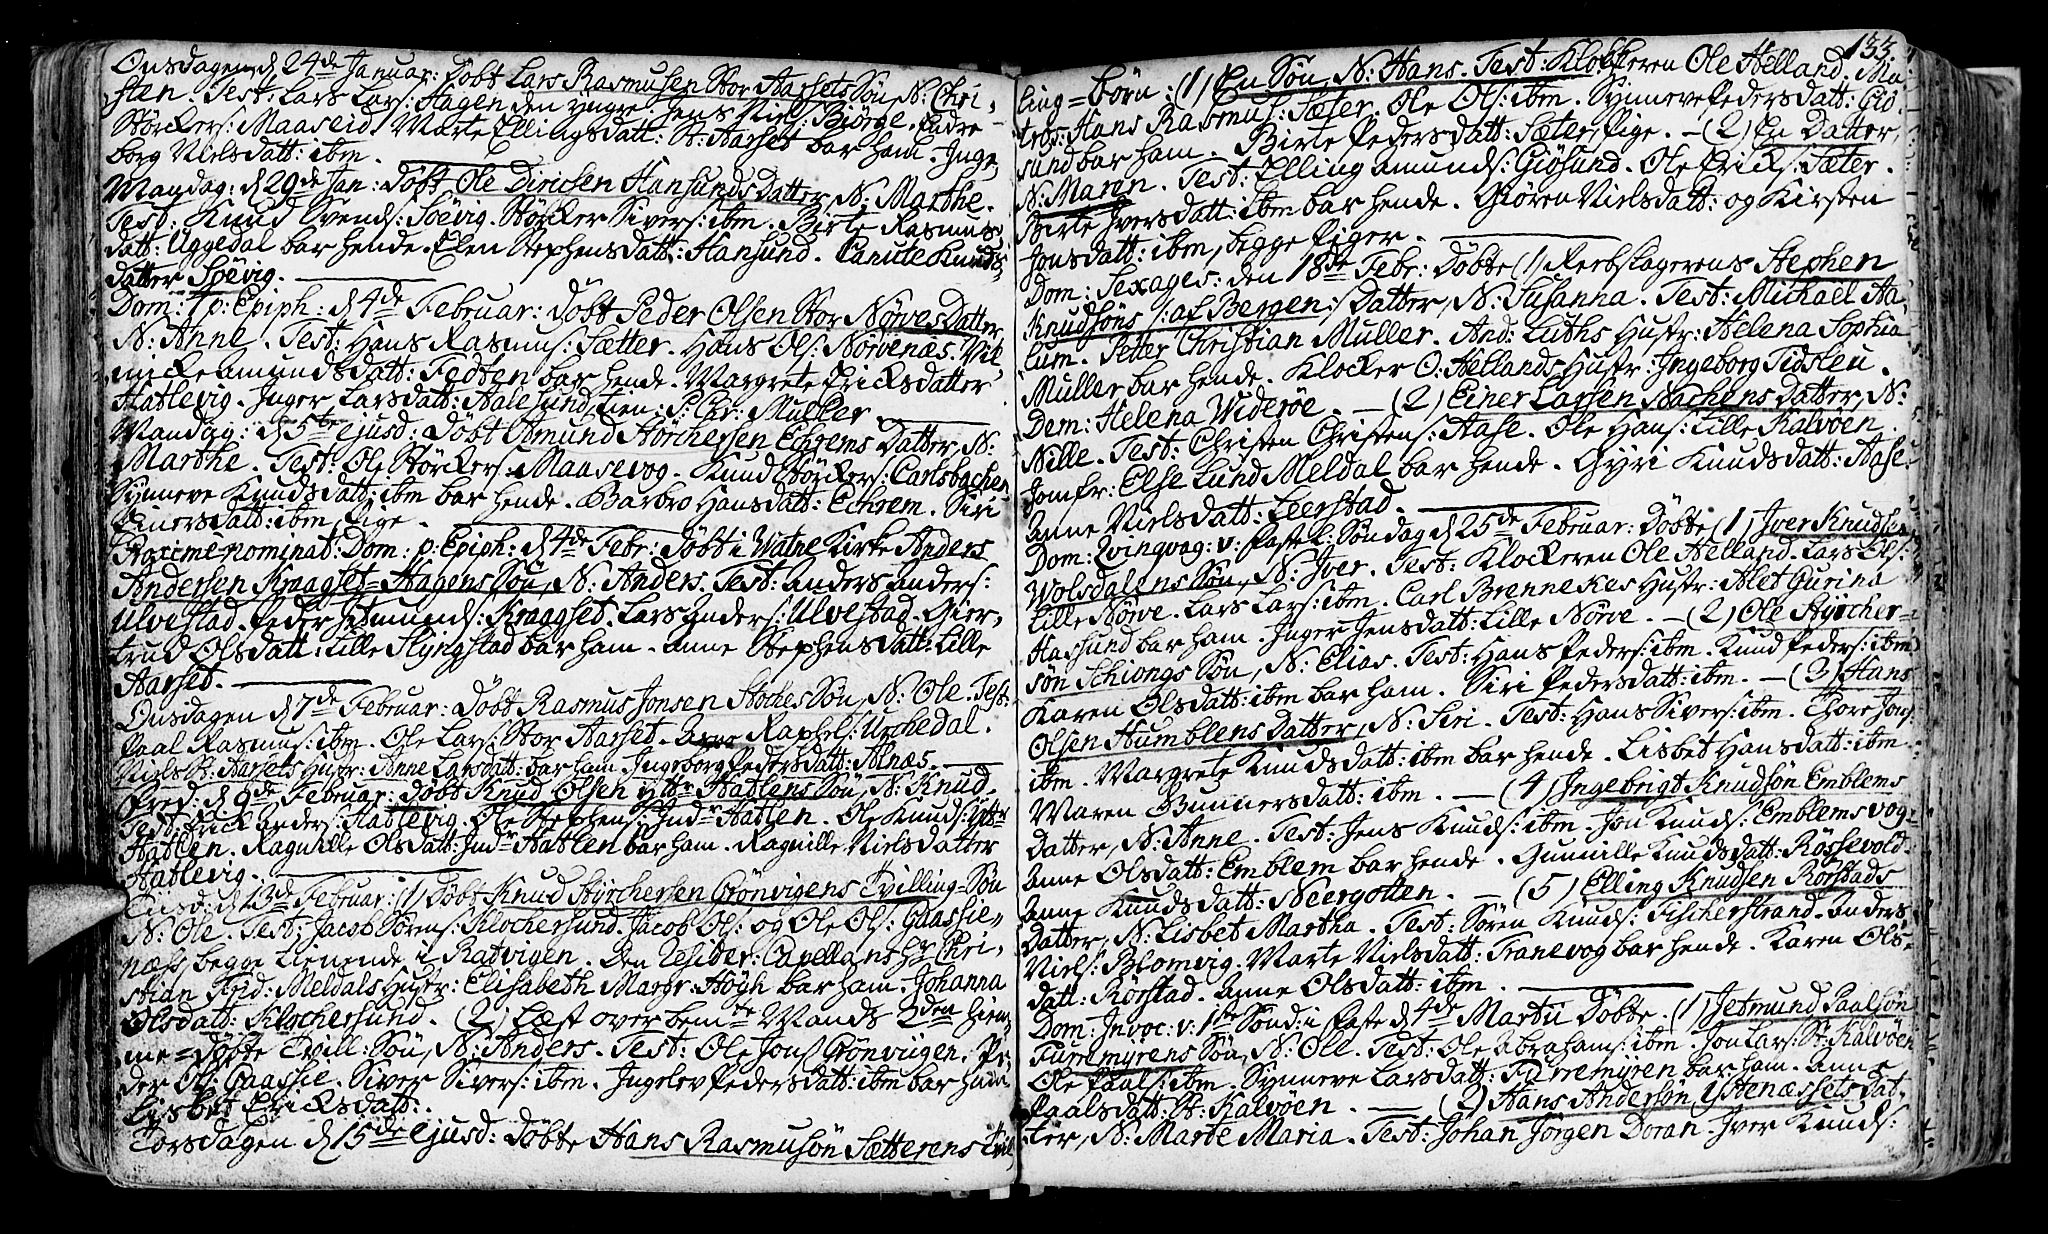 Onsdagen d 24de Januar: Döbt Lars Rasmusen Stor Aarsets Sön, N: Chri-
sten. Test: Lars Lars: Hagen den yngre. Jens Niels: Biörge. Endre
Störckers: Maaseid. Marte Ellingsdatt: St: Aarset bar ham. Inge-
borg Nielsdatt: ibm.
Mandag: d 29de Jan: Döbt Ole Dircsen Hansunds Datter, N: Marthe.
Test: Knud Svends: Soëvig. Störcker Sivers: ibm. Birte Rasmus-
datt: Uggedal bar hende. Elen Stephensdatt: Hansund. Canute Knuds-
datter Soëvig.
Dom: 4 p: Epiph: d 4de Februar: Döbt Peder Olsen Stor Nörves Datter
N: Anne. Test: Hans Rasmus: Sætter. Hans Ols: Nörvenæs. Vil-
micke Amundsdatt: Fedten bar hende. Margrete Ericksdatter
Hatlevig. Inger Larsdatt: Aalesund, tien: S: Chr: Muller
Mandag: d 5te ejusd: Döbt Amund Störchersen Echrems Datter, N:
Marthe. Test: Ole Störkers: Maasevog. Knud Störkers: Carlsbachen
Synneve Knudsdatt: ibm bar hende. Barbro Hansdatt: Echrem. Siri
Einersdatt: ibm, Pige.
Proximè nominat: Dom: p: Epiph: d 4de Febr: Döbt i Watne Kirke Anders
Andersen Kragset-Hagens Sön, N: Anders. Test: Anders Anders:
Ulvestad. Peder Jetmunds: Kragset. Lars Anders: Ulvestad. Gier-
trud Olsdatt: Lille Slyngstad bar ham. Anne Stephensdatt: Lille
Aarset.
Onsdagen d 7de Februar: Döbt Rasmus Jonsen Stoches Sön, N: Ole. Test:
Paal Rasmus: ibm. Ole Lars: Stor Aarset. Raphel: Urchedal.
Niels St: Aarsets Hustr: Anne Larsdatt: bar ham. Ingeborg Pedersdatt: Alnæs.
Fred: d 9de Februar: Döbt Knud Olsen Ytte Hatlens Sön, N: Knud.
Test: Erick Anders: Hatlevig. Ole Stephens: Indre Hatlen. Ole Knuds: Yttre
Hatlen. Ragnille Olsdatt: Indre Hatlen bar ham. Ragnille Nielsdatter
Hatlevig.
Tiisd: d 13de Februar: (1) Döbt Knud Styrchersen Grönvigens Tvilling-Sön
N: Ole. Test: Jacob Sörens: Klochersund. Jacob Ols: og Ole Ols: Gaassie-
næss, begge tienende i Ratvigen. Den Resider: Capellans Hr Chri-
stian Frid: Meldals Hustr: Elisabeth Margr: Högh bar ham. Johanna
Olsdatt: Klochersund. (2) Læst over bemte Mands 2den hiem-
me-döbte Tvill: Sön, N: Anders. Test: Ole Jons: Grönvigen. Pe-
der Ol: Gaassie. Siver Sivers: ibm. Ingelev Pedersdatt: ibm bar ham.
Lisbet Ericksdatt:
Torsdagen d 15de ejusd: Döbte Hans Rasmusön Sætterens Tvil-
133.
ling-Börn: (1) En Sön, N: Hans. Test: Klockeren Ole Helland. Ma-
trös: Hans Rasmus: Sæter. Ole Ols: ibm. Synneve Pedersdatt: Giö-
sund bar ham. Birte Pedersdatt: Sæter, Pige. - (2) En Datter,
N: Maren. Test: Elling Amunds: Giösund. Ole Ericks: Sæter.
Birte Iversdatt: ibm bar hende. Giören Nielsdatt: og Kirsten
Jonsdatt: ibm, begge Piger.
Dom: Sexages: den 18de Febr: Döbte (1) Rerbslagerens Stephen
Knudsöns /: af Bergen :/ Datter, N: Susanna. Test: Michael Aa-
lum. Petter Christian Muller. And: Luths Hustr: Helena Sophia
Muller bar hende. Klocker O: Hellands Hustr: Ingeborg Tidsleu.
Dem: Helena Wideröe. - (2) Einer Larsen Aachens Datter, N:
Nille. Test: Christen Christens: Aase. Ole Hans: Lille Kalvöen.
Jomfr: Else Lund Meldal bar hende. Gyri Knudsdatt: Aase.
Anne Nielsdatt: Leerstad.
Dom: Qvingvag: v: Faste L: Söndag d 25de Februar: Döbte (1) Iver Knudsen
Wolsdalens Sön, N: Iver. Test: Klockeren Ole Helland. Lars Ols:
Lille Nörve. Lars Lars: ibm. Carl Brennekes Hustr: Alet Gurina
Hassund bar ham. Inger Jensdatt: Lille Nörve. - (2) Ole Styrcher-
sön Schiongs Sön, N: Elias. Test: Hans Peders: ibm. Knud Peders: ibm
Karen Olsdatt: ibm bar ham. Siri Pedersdatt: ibm. - (3) Hans
Olsen Humblens Datter, N: Siri. Test: Hans Sivers: ibm. Thore Jons:
ibm. Margrete Knudsdatt: ibm bar hende. Lisbet Hansdatt: ibm.
Maren Gunnersdatt: ibm. - (4) Ingebrigt Knudsön Emblems
Datter, N: Anne. Test: Jens Knuds: ibm. Jon Knuds: Emblemsvog.
Anne Olsdatt: Emblem bar hende. Gunnille Knudsdatt: Rössevold.
Anne Knudsdatt: Neergotten. - (5) Elling Knudsen Rörstads
Datter, N: Lisbet Martha. Test: Sören Knuds: Fischerstrand. Anders
Niels: Blomvig. Marte Nielsdatt: Tranevog bar hende. Karen Ols-
datt: Rörstad. Anne Olsdatt: ibm.
Dom: Invoc: v: 1ste Sönd: i Faste d 4de Martii Döbte. (1) Jetmund Paalsön
Furremyrens Sön, N: Ole. Test: Ole Abrahams: ibm. Jon Lars: St: Kalvöen
Ole Paals: ibm. Synneve Larsdatt: Furremyren bar ham. Anne
Paalsdatt: St: Kalvöen. - (2) Hans Andersön Ystenæssets Dat-
ter, N: Marte Maria. Test: Johan Jörgen Doran. Iver Knuds: